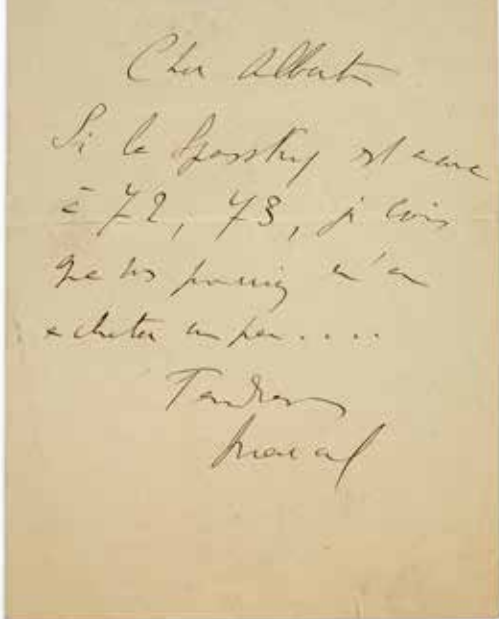 Cher Albert
Si la Spassky est encore
à 72, 73, je crois
que vous pourriez m'en
acheter un peu....
Tendresses
Marcel